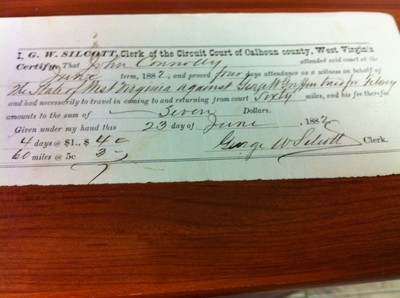 I, G. W. SILCOTT, Clerk of the Circuit Court of Calhoun county, West Virginia
Certify, That John Connolly attended said court at the
June term, 1882, and proved four days attendance as a witness on behalf of
The State of West Virginia against for felony
and had necessarily to travel in coming to and returning from court Sixty miles, and his fee therefor
amounts to the sum of Seven Dollars.
Given under my hand this 23 day of June, 1882
4 days @ $1., $ 4 George W Silcott Clerk.
60 miles @ 5c 3